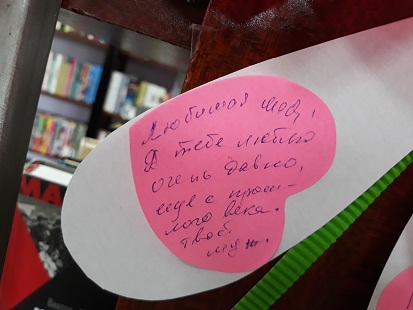 Любимая моя,
Я тебе люблю
очень давно,
еще с прош-
лого века.
твой
муж.
МА